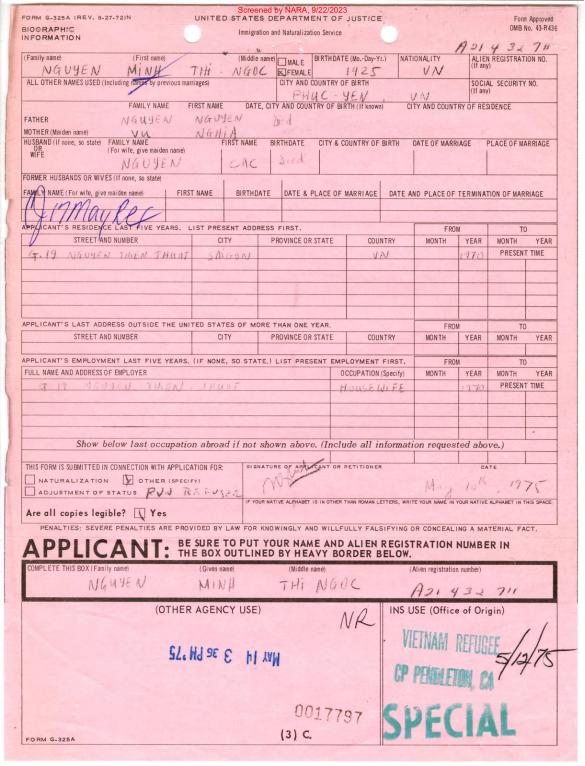 Screened by NARA, 9/22/2023
FORM G-325A (REV. 8-27-72)N
UNITED STATES DEPARTMENT OF JUSTICE
Form Approved
OMB No. 43-R436
BIOGRAPHIC
INFORMATION
Immigration and Naturalization Service
A21 432 711
(Family name) (First name) (Middle name) MALE FEMALE BIRTHDATE (Mo.-Day-Yr.) NATIONALITY ALIEN REGISTRATION NO. (If any)
NGUYEN MINH THI NGOC 1925 VN
ALL OTHER NAMES USED (Including names by previous marriages) CITY AND COUNTRY OF BIRTH SOCIAL SECURITY NO. (If any)
PHUC-YEN, VN
FAMILY NAME FIRST NAME DATE, CITY AND COUNTRY OF BIRTH (If known) CITY AND COUNTRY OF RESIDENCE
FATHER NGUYEN NGUYEN Died
MOTHER (Maiden name) VU NGHIA
HUSBAND (If none, so state) OR WIFE FAMILY NAME (For wife, give maiden name) FIRST NAME BIRTHDATE CITY & COUNTRY OF BIRTH DATE OF MARRIAGE PLACE OF MARRIAGE
NGUYEN CAC Died
FORMER HUSBANDS OR WIVES (If none, so state)
FAMILY NAME (For wife, give maiden name) FIRST NAME BIRTHDATE DATE & PLACE OF MARRIAGE DATE AND PLACE OF TERMINATION OF MARRIAGE
APPLICANT'S RESIDENCE LAST FIVE YEARS. LIST PRESENT ADDRESS FIRST. FROM TO
STREET AND NUMBER CITY PROVINCE OR STATE COUNTRY MONTH YEAR MONTH YEAR
G.19 NGUYEN THIEN THUAT SAIGON VN 1970 PRESENT TIME
APPLICANT'S LAST ADDRESS OUTSIDE THE UNITED STATES OF MORE THAN ONE YEAR. FROM TO
STREET AND NUMBER CITY PROVINCE OR STATE COUNTRY MONTH YEAR MONTH YEAR
APPLICANT'S EMPLOYMENT LAST FIVE YEARS. (IF NONE, SO STATE.) LIST PRESENT EMPLOYMENT FIRST. FROM TO
FULL NAME AND ADDRESS OF EMPLOYER OCCUPATION (Specify) MONTH YEAR MONTH YEAR
G 19 NGUYEN THIEN THUAT HOUSEWIFE 1970 PRESENT TIME
Show below last occupation abroad if not shown above. (Include all information requested above.)
THIS FORM IS SUBMITTED IN CONNECTION WITH APPLICATION FOR: SIGNATURE OF APPLICANT OR PETITIONER DATE
NATURALIZATION OTHER (SPECIFY)
ADJUSTMENT OF STATUS REFUGEE 1975
IF YOUR NATIVE ALPHABET IS IN OTHER THAN ROMAN LETTERS, WRITE YOUR NAME IN YOUR NATIVE ALPHABET IN THIS SPACE.
Are all copies legible? Yes
PENALTIES: SEVERE PENALTIES ARE PROVIDED BY LAW FOR KNOWINGLY AND WILLFULLY FALSIFYING OR CONCEALING A MATERIAL FACT.
APPLICANT: BE SURE TO PUT YOUR NAME AND ALIEN REGISTRATION NUMBER IN
THE BOX OUTLINED BY HEAVY BORDER BELOW.
COMPLETE THIS BOX (Family name) (Given name) (Middle name) (Alien registration number)
NGUYEN MINH THI NGOC A21 432 711
(OTHER AGENCY USE) NR INS USE (Office of Origin)
VIETNAM REFUGEE
5/12/75
MAY 14 3 36 PM '75
CP PENDLETON, CA
0017797
SPECIAL
(3) C.
FORM G-325A